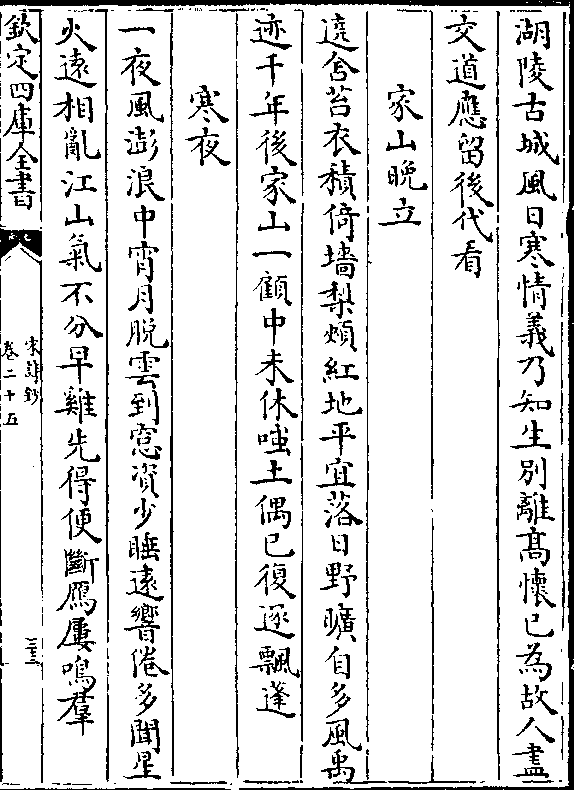 湖陵古城風日寒情義乃知生別離髙懷已為故人盡
文道應留後代看
家山晩立
遶舍苔衣積倚墻梨頰紅地平宜落日野曠自多風禹
迹千年後家山一顧中未休嗤土偶已復逐飄蓬
寒夜
一夜風澎浪中宵月脱雲到窓資少睡逺響倦多聞星
火逺相亂江山氣不分早雞先得便斷鴈屢鳴羣
欽定四庫全書
宋詩鈔
卷二十五
三十三